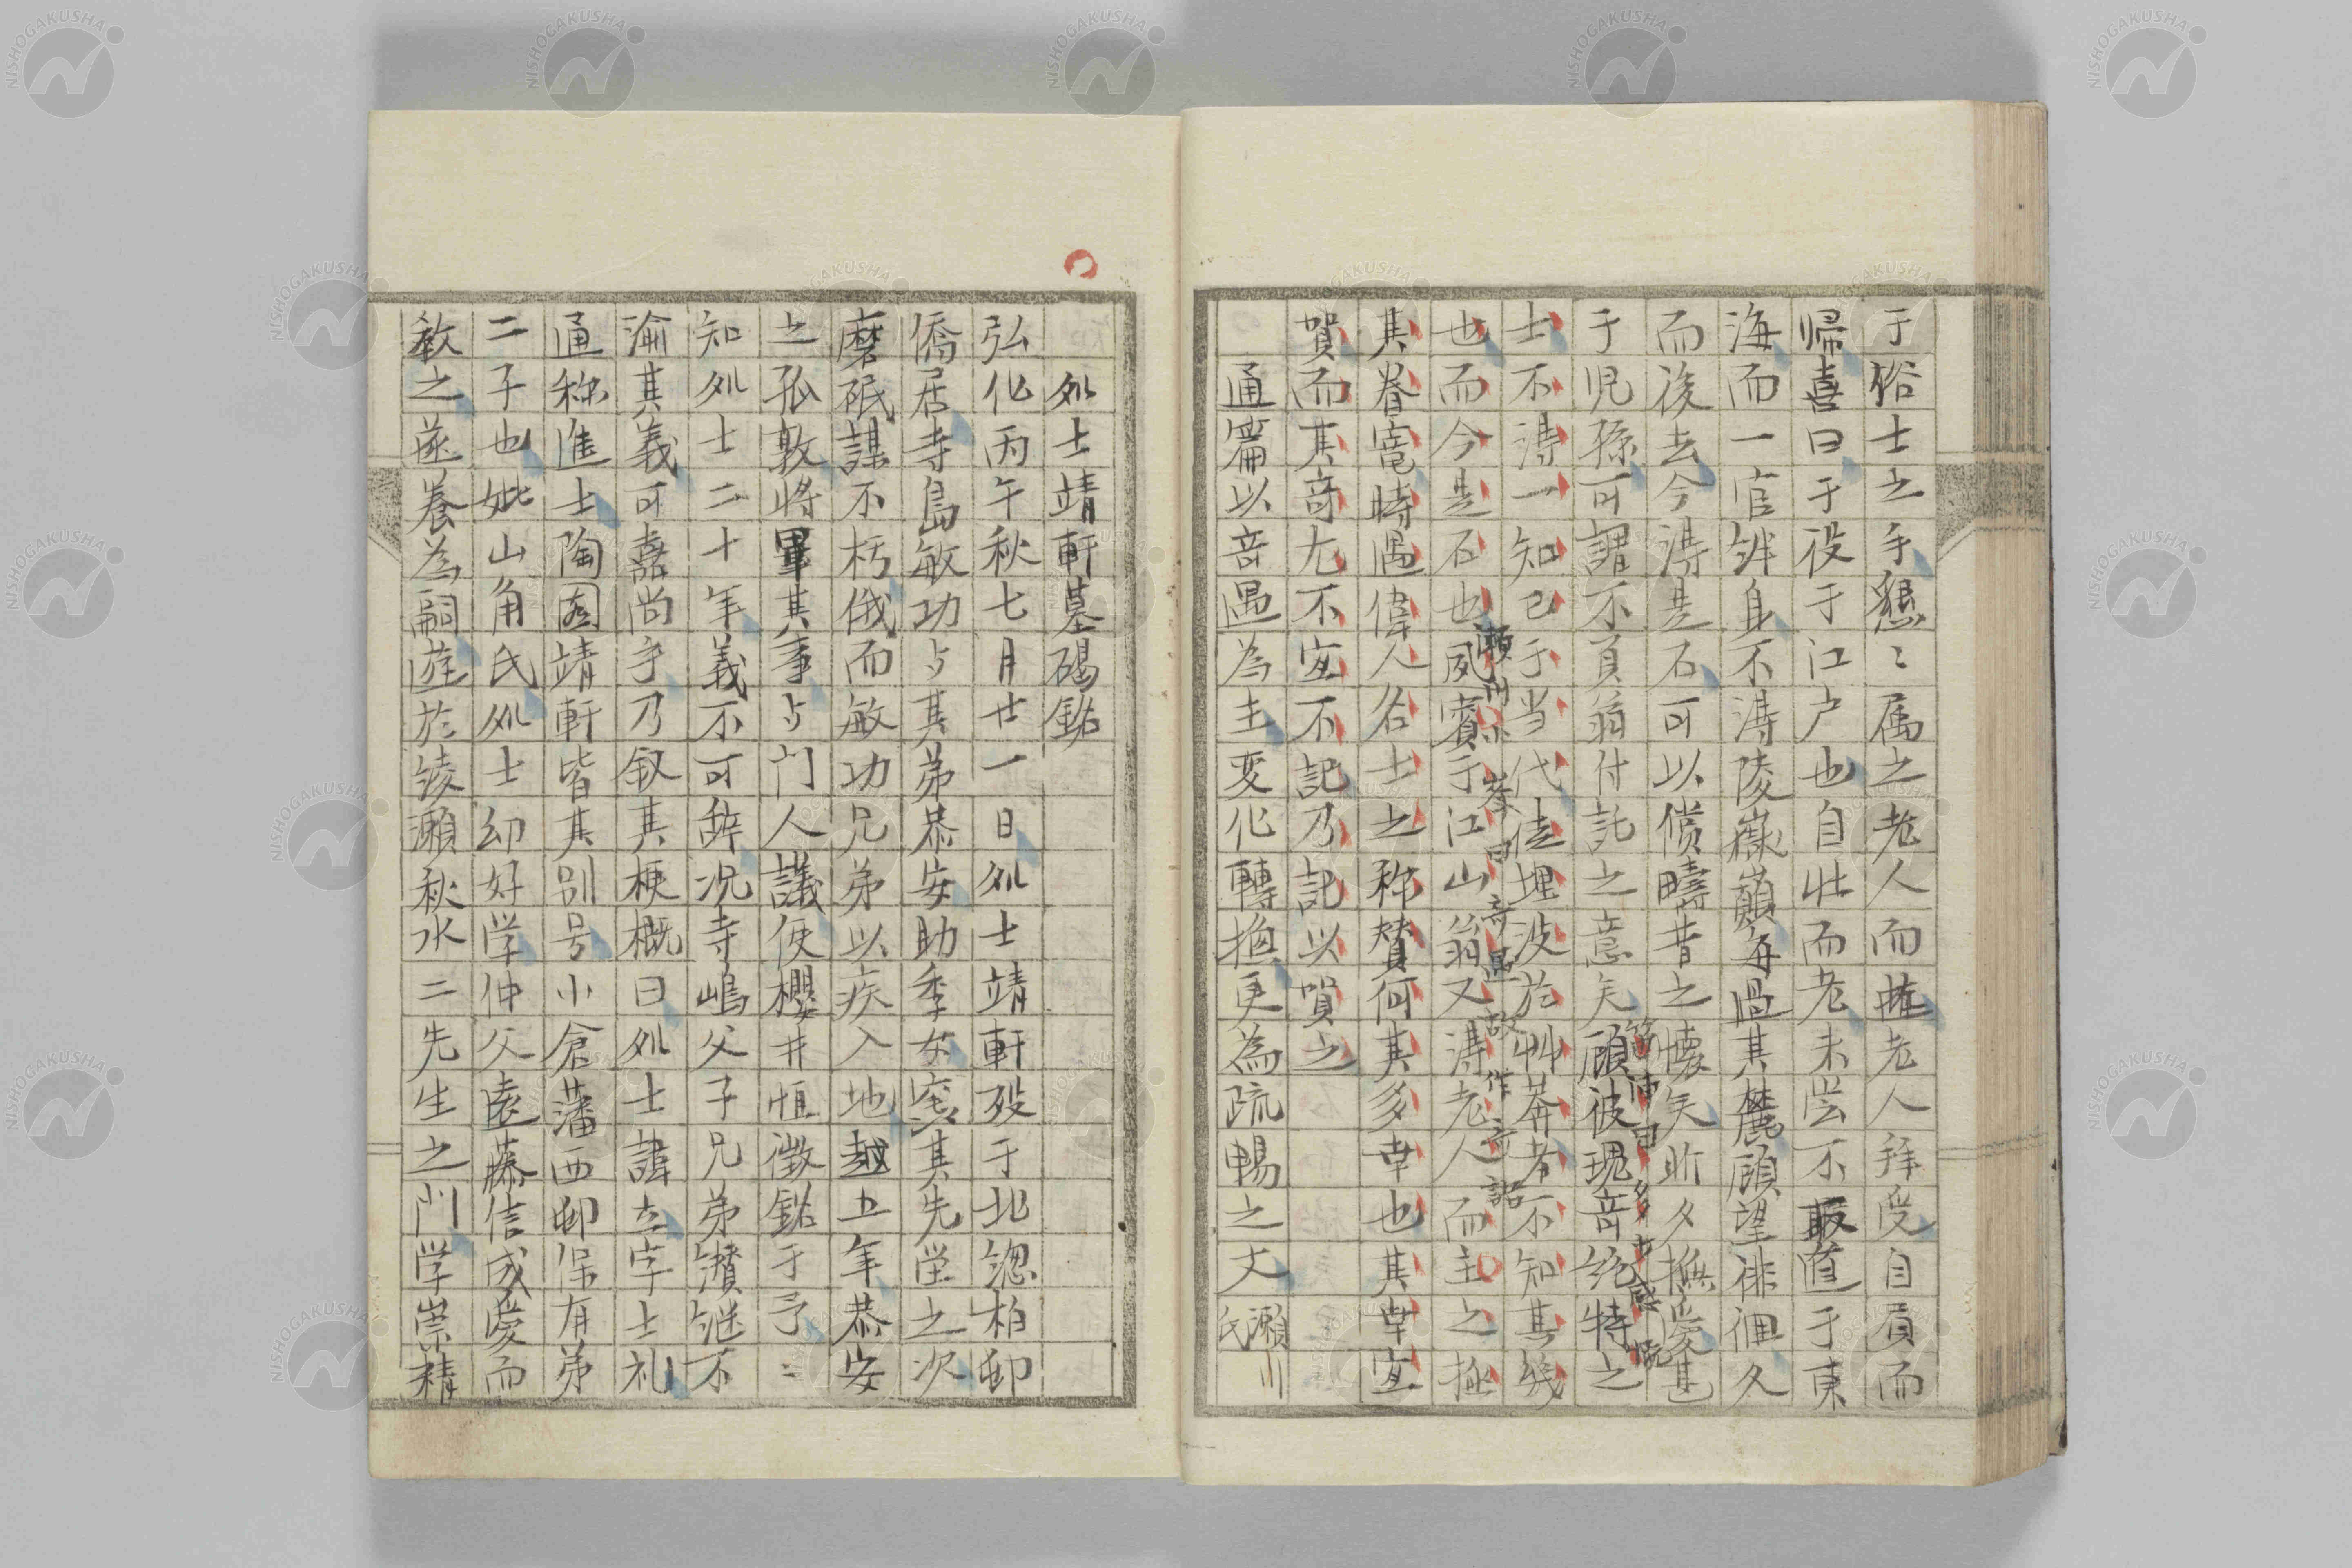 于俗士之手懇〻属之老人而拖老人拜受自眉而
帰喜曰于役于江戸也自壮而老未尝不取道于東
海而一官絆身不淂陵嶽巔每過其麓顧望徘徊久
而後去今淂是石可以償疇昔之懐矣昕夕撫愛甚
于児孫可謂不負翁付託之意矣顧彼瑰奇绝特之
士不淂一知己于当代徒埋没於艸莽者不知其幾
也而今是石也夙賓于江山翁又淂老人而主之極
其眷寵時遇偉人名士之称賛何其多幸也其幸宜
賀而其奇尤不宜不記乃記以賀之
通篇以奇遇為主変化轉換更為疏暢之文 瀬川氏
処士靖軒墓碣銘
弘化丙午秋七月廿一日処士靖軒殁于北總柏邨
僑居寺島敏功与其弟恭安助季女窆其先塋之次
磨砥謀不朽俄而敏功兄弟以疾入地越五年恭安
之孤敦将畢其事与门人議使櫻井恒徴銘于予〻
知処士二十年義不可辞况寺嶋父子兄弟纉継不
渝其義可嘉尚乎乃叙其梗概曰処士諱圡字士礼
通称進士陶园靖軒皆其别号小倉藩西邨保有弟
二子也妣山角氏処士幼好学仲父遠藤信成愛而
教之遂養為嗣遊於綾瀬秋水二先生之門学崇精